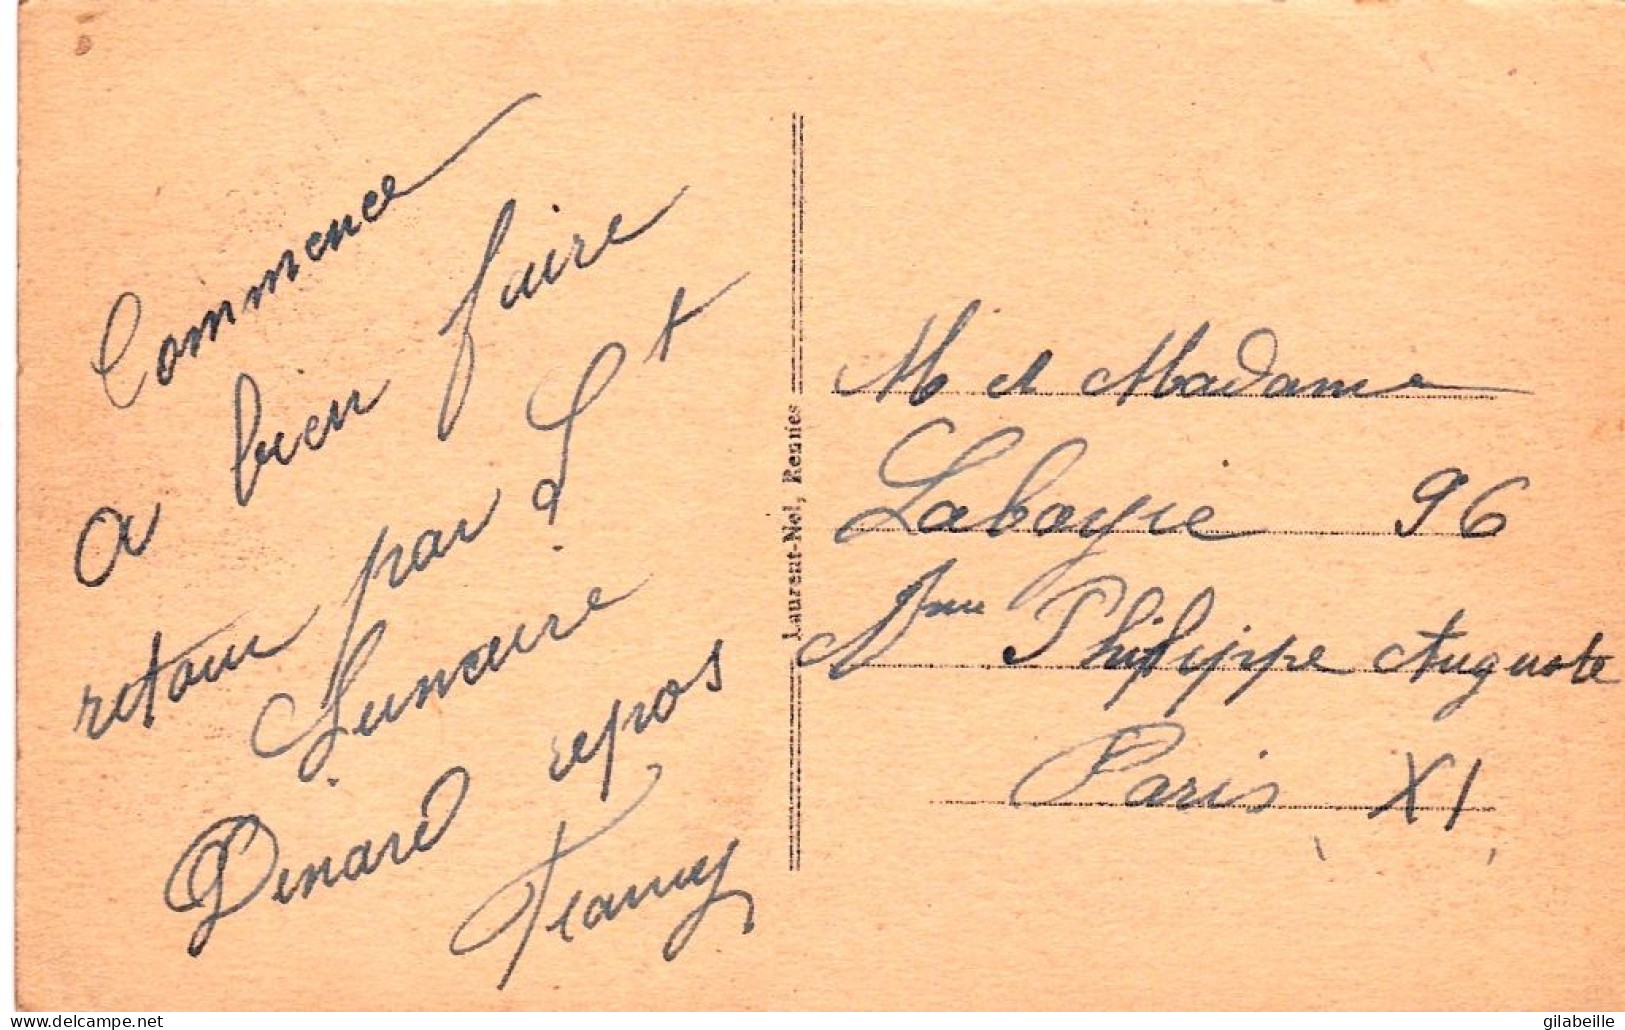 Commence
a bien faire
retour par St
Lunaire
Dinard repos
Laurent-Nel, Rennes
M et Madame
Laboyrie 96
Philippe Auguste
Paris XI
delcampe.net
gilabeille